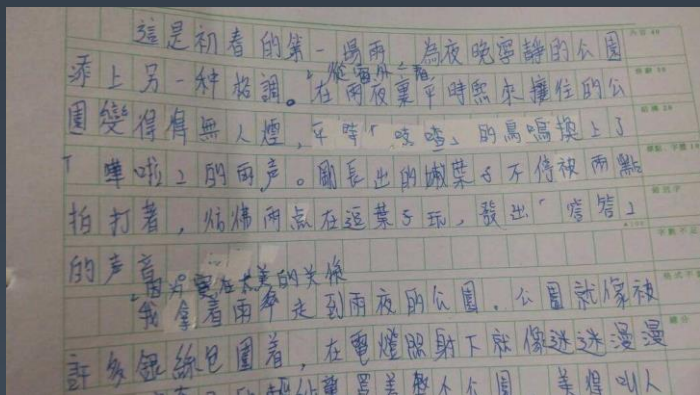 這是初春的第一場雨，為夜晚寧靜的公園
添上另一種格調。在雨夜裏平時熙來攘往的公
園變得無人煙，平時「吱喳」的鳥鳴換上了
「嘩啦」的雨声。剛長出的嫩葉子不停被雨點
拍打著，彷彿雨点在逗葉子玩，發出「嗒答」
的声音。
因為實在太美的关係
我拿着雨傘走到雨夜的公園。公園就像被
許多銀絲包圍着，在電燈照射下就像迷迷漫漫
籠罩着整个公園 美得叫人